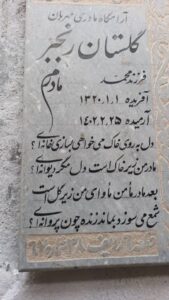 آرامگاه مادری مهربان
گلستان رنجبر
مادرم
فرزند محمد
آفریده ۱۳۲۰.۱.۱
آرمیده ۱۴۰۲.۲.۲۵
دل به روی خاک می خواهی بسازی خانه ای؟
مادر من زیر خاک است دل مگر دیوانه ای؟
بعد مادر مأمن و مأوای من زیر گل است
شمع می سوزد بماند زنده چون پروانه ای